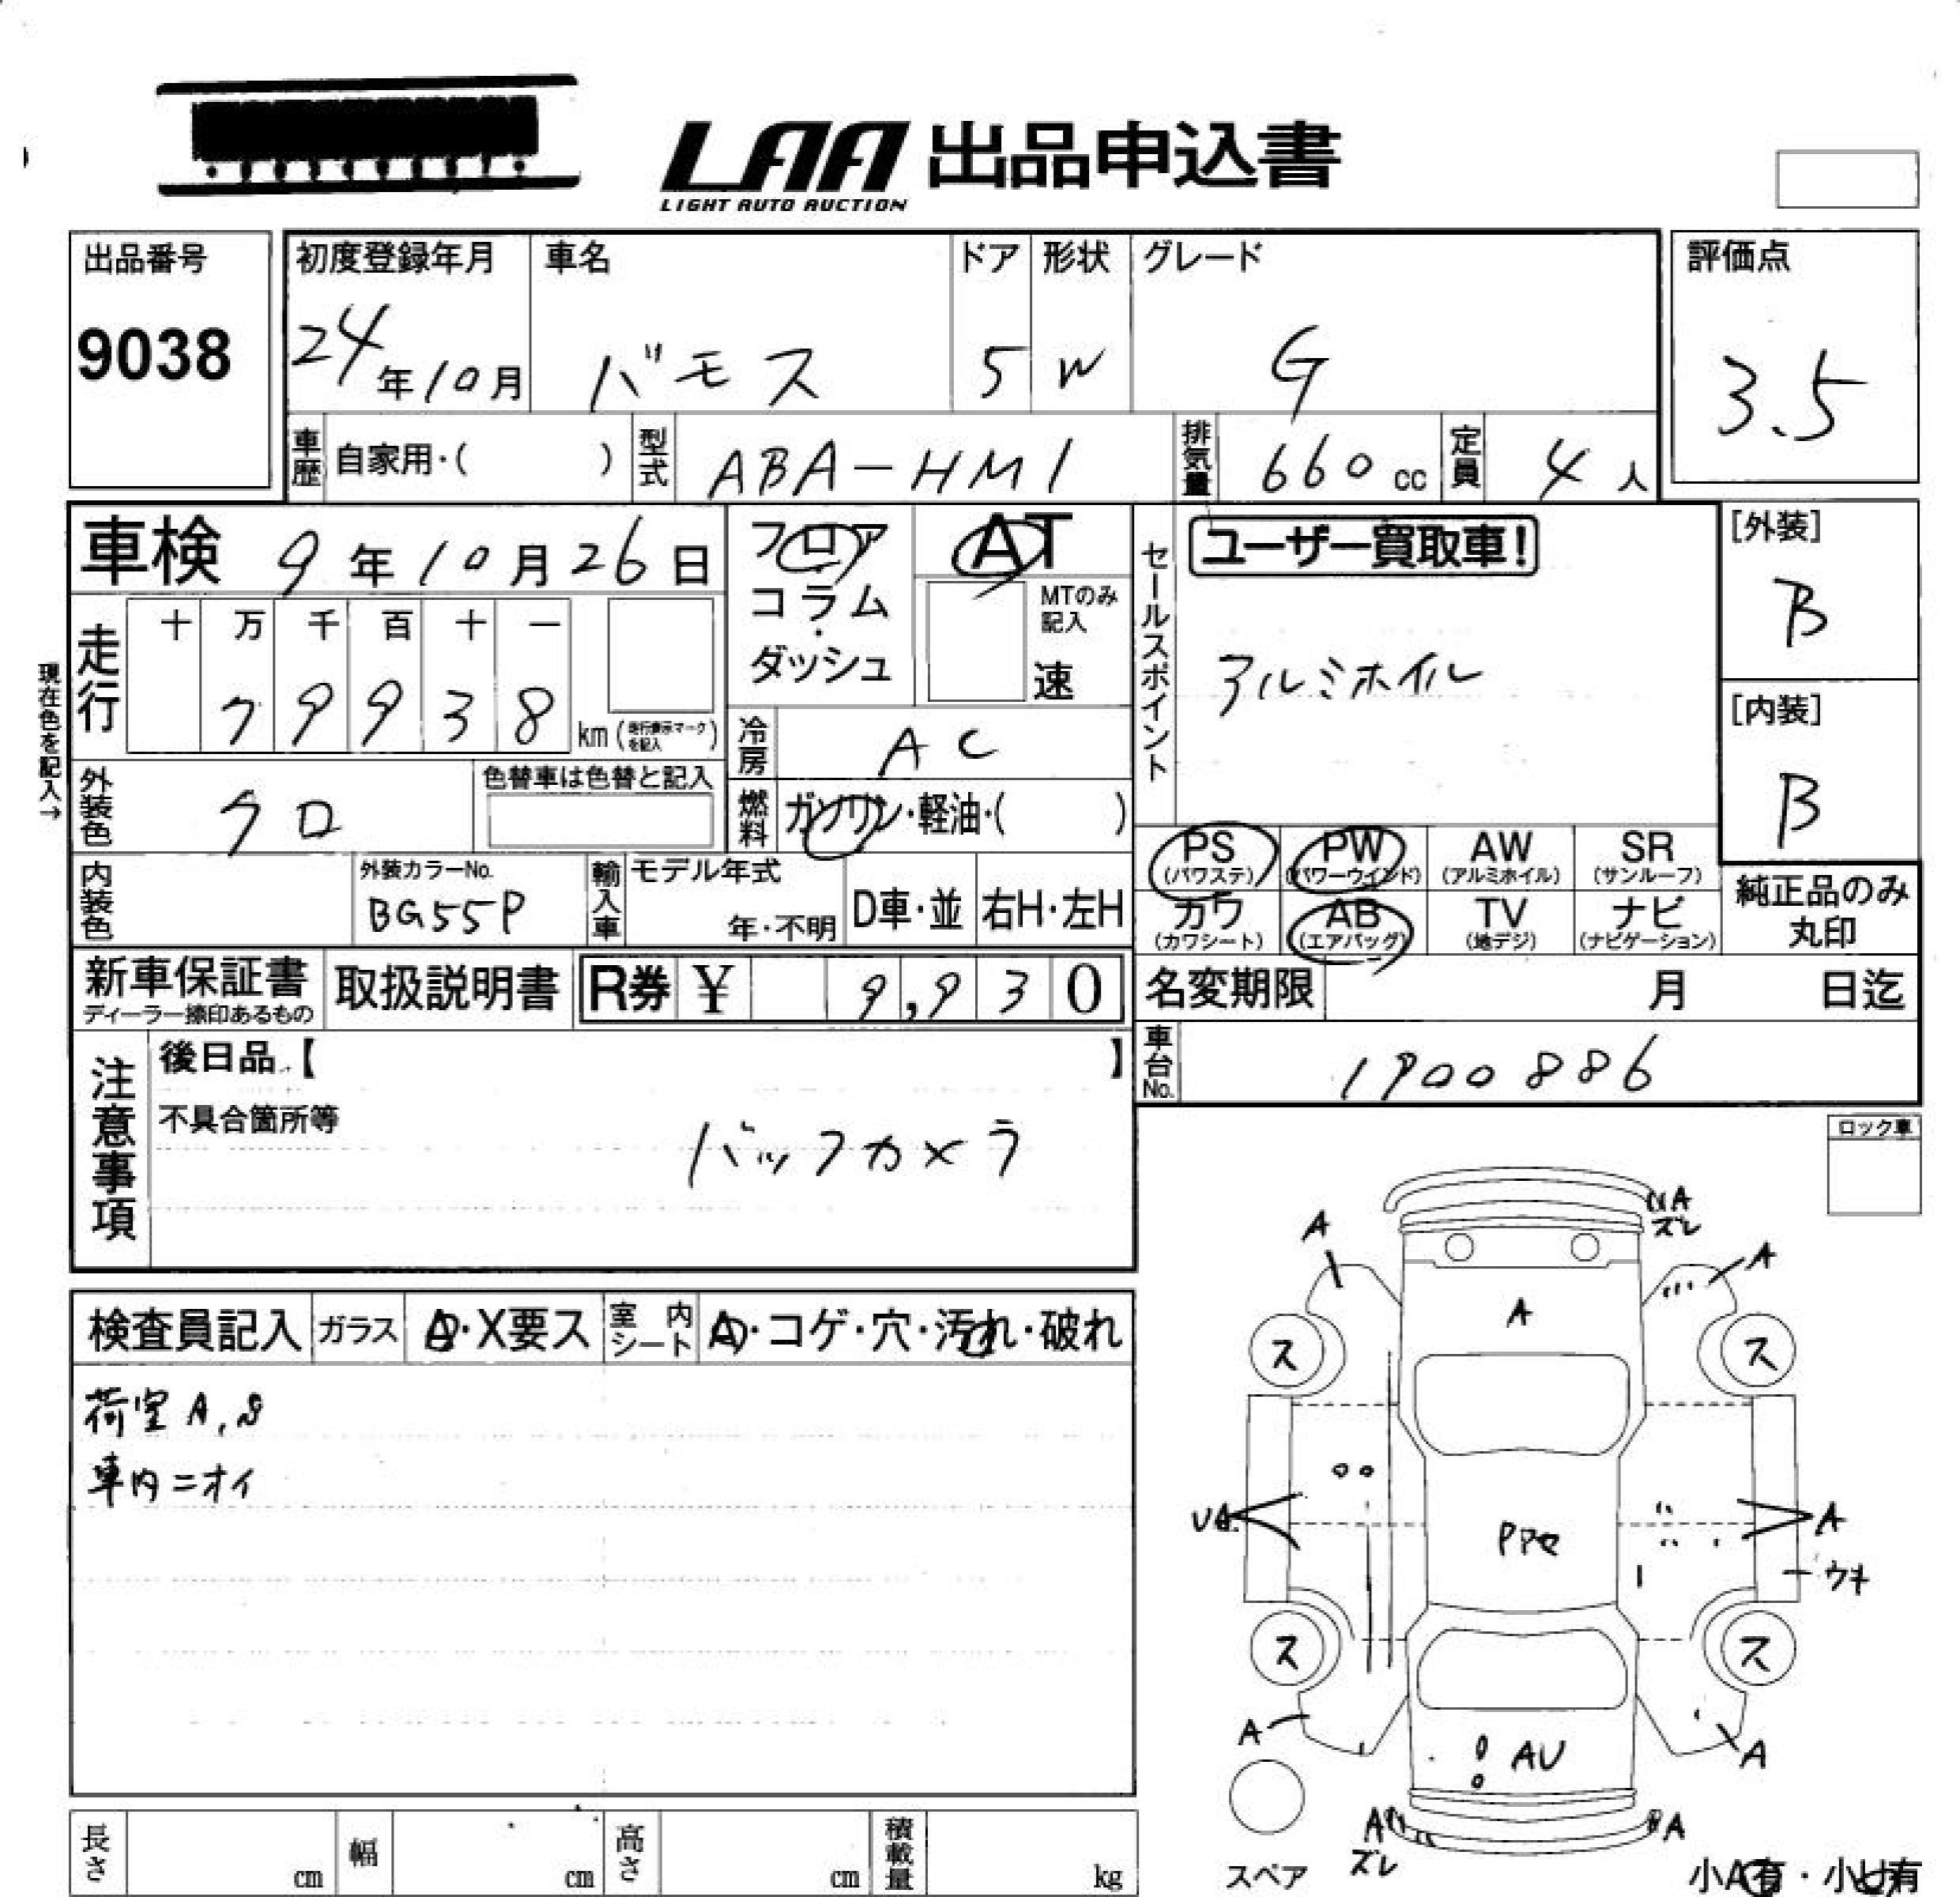 LAA 出品申込書
LIGHT AUTO AUCTION
出品番号
9038
初度登録年月
24年10月
車名
バモス
ドア
5
形状
W
グレード
G
評価点
3.5
車歴 自家用・( )
型式 ABA-HM1
排気量 660cc
定員 4人
車検 9年10月26日
フロア
コラム・
ダッシュ
AT
MTのみ
記入
速
セールスポイント
ユーザー買取車!
アルミホイル
[外装]
B
[内装]
B
現在色を記入→
走行
十 万 千 百 十 一
7 9 9 3 8 km(走行表示マークを記入)
冷房 AC
外装色 クロ
色替車は色替と記入
燃料 ガソリン・軽油・( )
PS
(パワステ)
PW
(パワーウインド)
AW
(アルミホイル)
SR
(サンルーフ)
カワ
(カワシート)
AB
(エアバッグ)
TV
(地デジ)
ナビ
(ナビゲーション)
純正品のみ
丸印
内装色
外装カラーNo.
BG55P
輸入車
モデル年式
年・不明
D車・並
右H・左H
新車保証書
ディーラー捺印あるもの
取扱説明書
R券 ¥ 9,930
名変期限 月 日迄
車台No. 1900886
注意事項
後日品【 】
不具合箇所等
バックカメラ
ロック車
検査員記入
ガラス
A・X要ス
室内シート
A・コゲ・穴・汚れ・破れ
荷室A,S
車内ニオイ
A
ズレ
A
A
A
ス
ス
UA
A
ウキ
ス
ス
A
AU
A
A
ズレ
A
スペア
小A有・小U有
長さ cm
幅 cm
高さ cm
積載量 kg